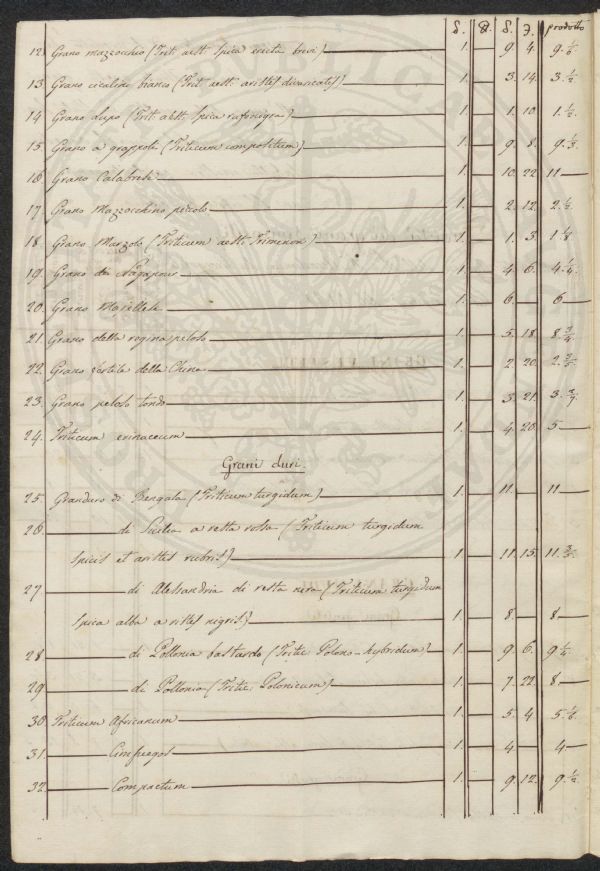 δ. ℞. δ. Э. prodotto
12. Grano mazzocchio (Trit. aest. Spica erecta brevi) 1. — 9. 4. 9. 1/6
13. Grano cicalino bianco (Trit. aest. aristis divaricatis) 1. — 3. 14. 3. 1/2
14. Grano lupo (Trit. aest. Spica rufonigra) 1. — 1. 10. 1. 1/2
15. Grano a grappoli (Triticum compositum) 1. — 9. 8. 9. 1/3
16. Grano Calabrese 1. — 10. 22. 11 —
17. Grano Mazzocchino peloso 1. — 2. 12. 2. 1/2
18. Grano Marzolo (Triticum aest. Trimenon) 1. — 1. 3. 1. 1/8
19. Grano 1. — 4. 6. 4. 1/4
20. Grano 1. — 6 — 6 —
21. Grano della regina peloso 1. — 5. 18. 8 3/4
22. Grano fertile della China 1. — 2. 20. 2.
23. Grano peloso tondo 1. — 3. 21. 3.
24. Triticum erinaceum 1. — 4. 20. 5 —
Grani duri.
25. Granduro di Bengala (Triticum turgidum) 1. — 11. — 11 —
26. — di Sicilia a resta rossa (Triticum turgidum
spicis et aristis rubris) 1. — 11. 15. 11.
27 — di Alessandria di resta nera (Triticum turgidum
Spica alba aristis nigris) 1. — 8. — 8 —
28 — di Pollonia bastardo (Tritic. Polono-hybridum) 1. — 9. 6. 9 1/4
29 — di Pollonia (Tritic. Polonicum) 1. — 7. 22. 8 —
30 Triticum Africanum 1. — 5. 4 5. 1/6
31. — Cinfuegos 1. — 4 — 4 —
32. — Compactum 1. — 9. 12. 9. 1/2